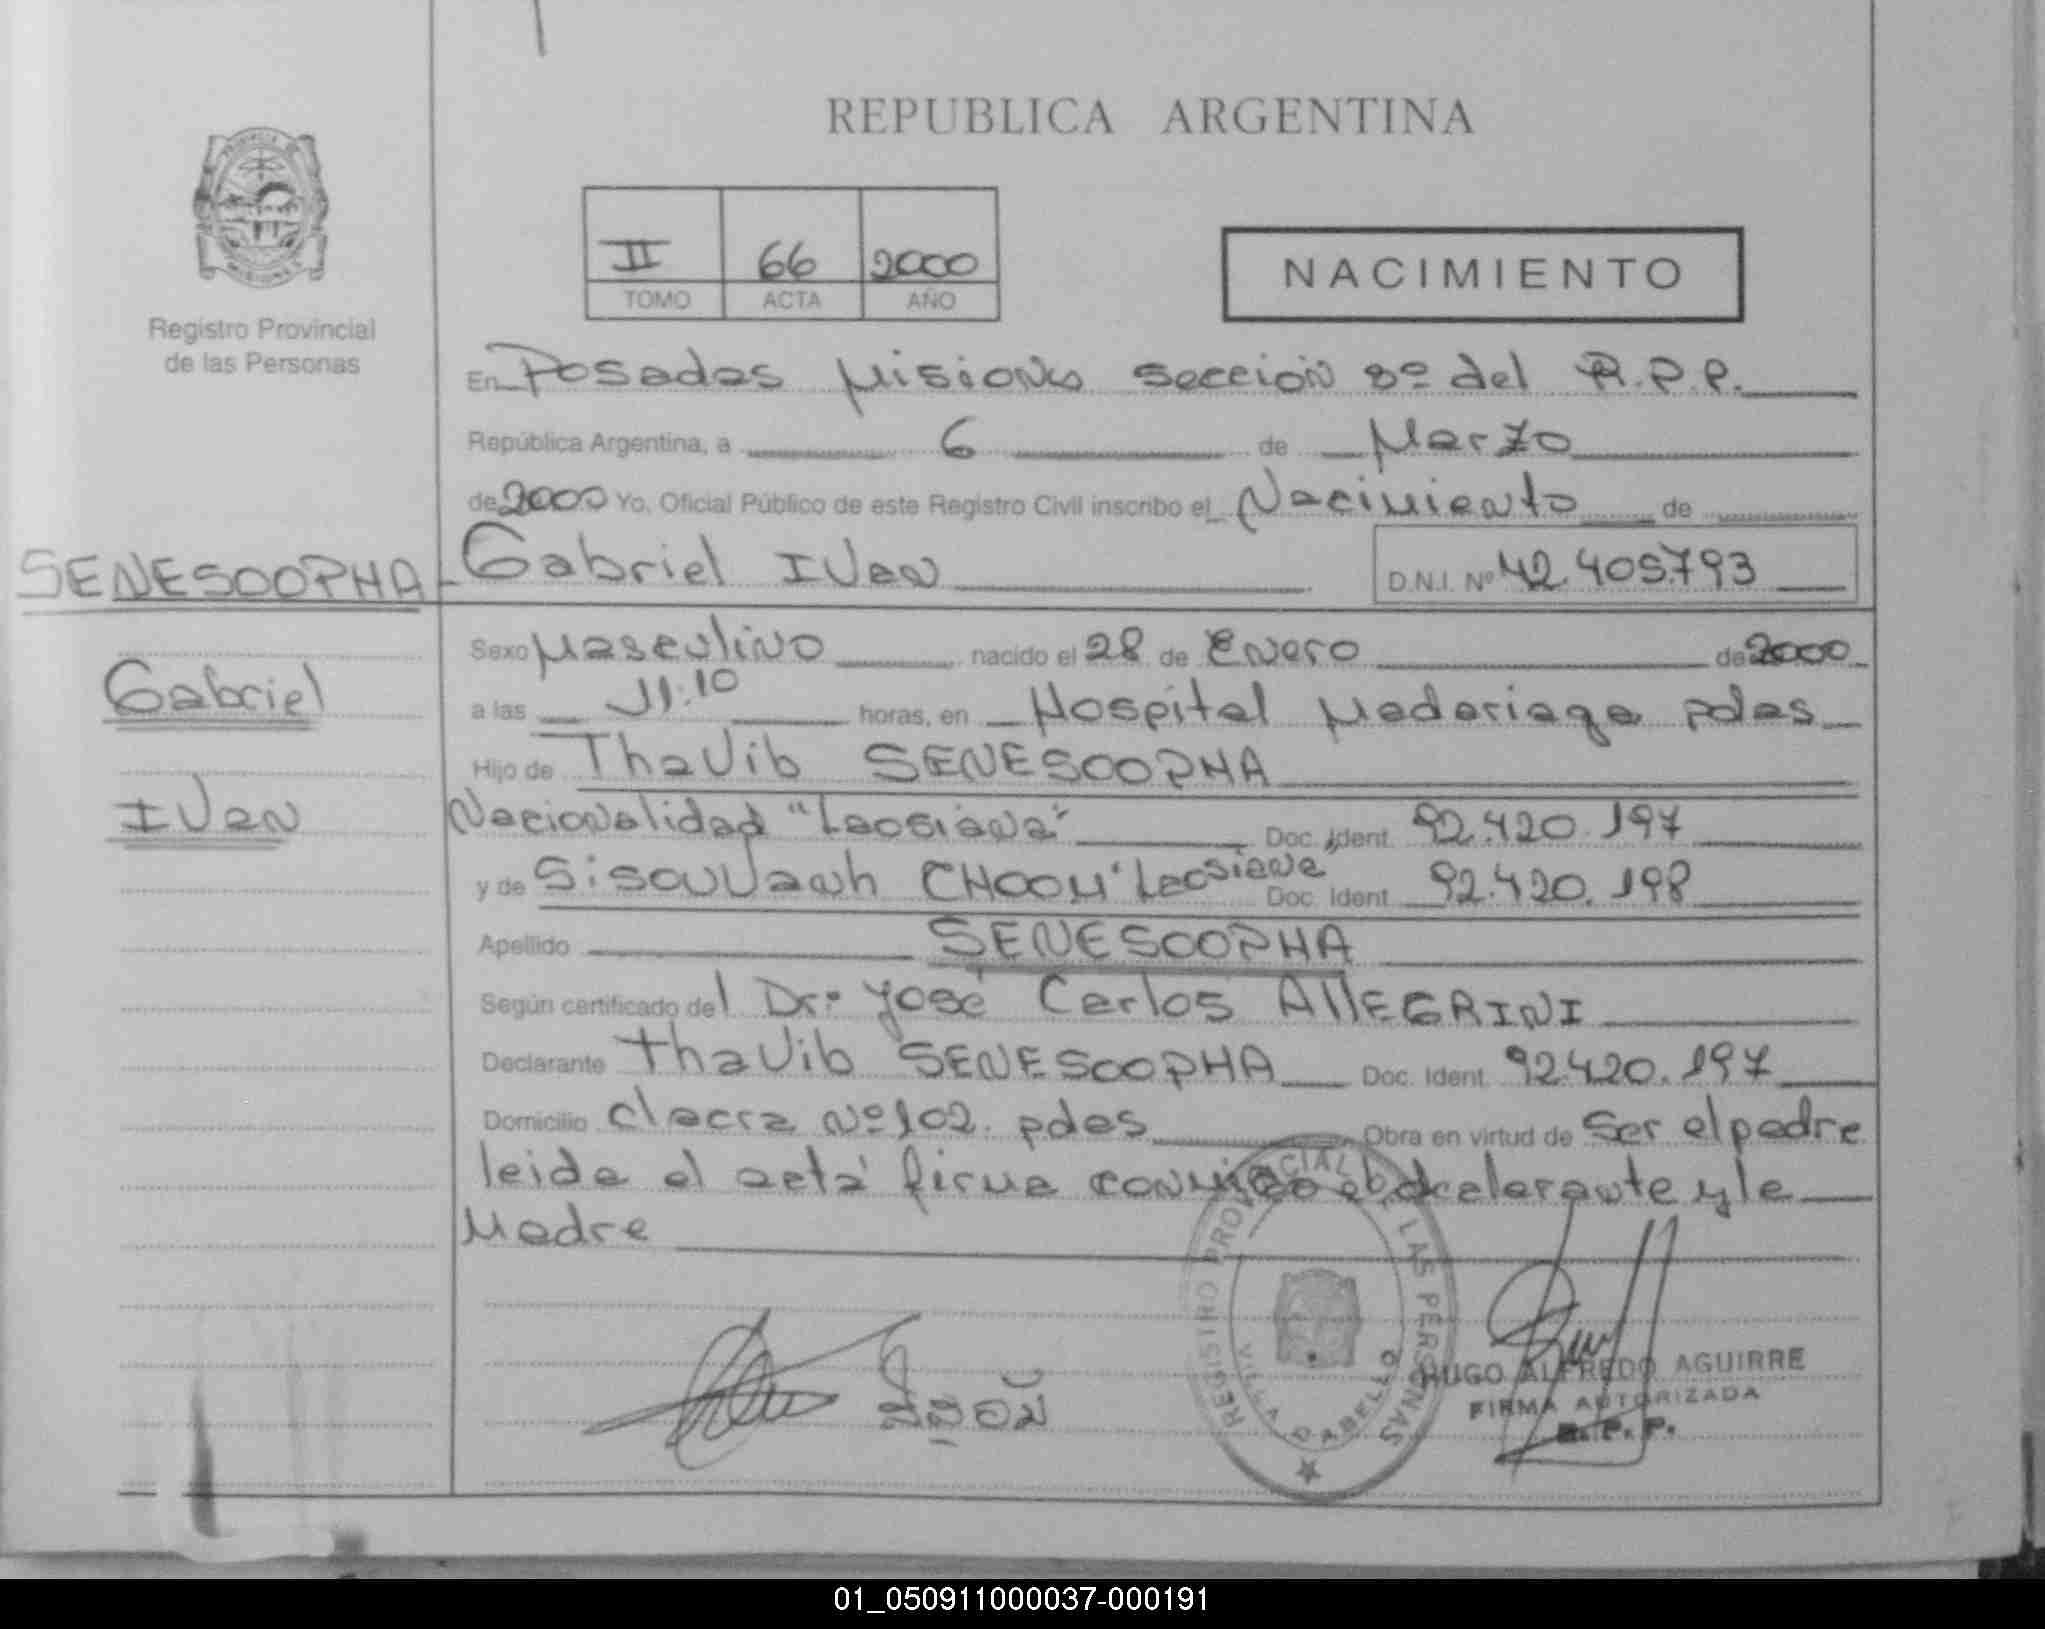 REPUBLICA ARGENTINA
II 66 2000
TOMO ACTA AÑO
NACIMIENTO
Registro Provincial
de las Personas
En Posadas Misiones sección 8º del R.P.P.
República Argentina, a 6 de Marzo
de 2000 Yo, Oficial Público de este Registro Civil inscribo el Nacimiento de
SENESOOPHA Gabriel Ivan D.N.I. Nº 42.405.793
Gabriel
Ivan
Sexo Masculino nacido el 28 de Enero de 2000
a las 11:10 horas, en Hospital Madariaga pdas
Hijo de Thavib SENESOOPHA
Nacionalidad "Laosiana" Doc. Ident. 92.420.197
y de Sisouvanh CHOOM "Laosiana" Doc. Ident. 92.420.198
Apellido SENESOOPHA
Según certificado del Dr: José Carlos AllEGRINI
Declarante Thavib SENESOOPHA Doc. Ident. 92.420.197
Domicilio chacra Nº 102. pdas Obra en virtud de ser el padre
leida el acta firma conmigo el declarante y la
Madre
REGISTRO PROVINCIAL DE LAS PERSONAS
VILLA CABELLO
HUGO ALFREDO AGUIRRE
FIRMA AUTORIZADA
R. P. P.
01_050911000037-000191